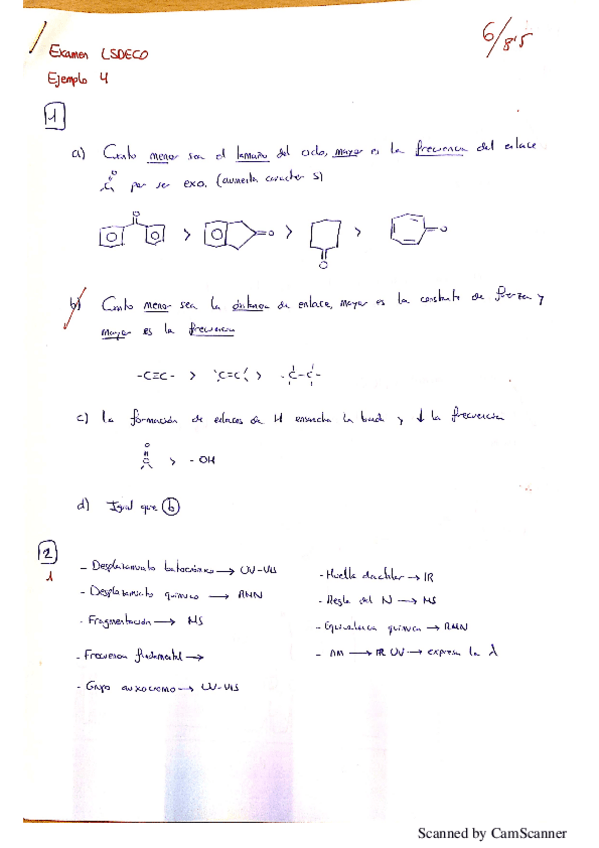 Examen LSDECO
6/8'5
Ejemplo 4
1
a) Cuanto menor sea el tamaño del ciclo, mayor es la frecuencia del enlace
por ser exo. (aumenta caracter s)
> > >
b) Cuanto menor sea la distancia de enlace, mayor es la constante de fuerza y
mayor es la frecuencia
-C≡C- > C=C > -C-C-
c) la formación de enlaces de H ensancha la banda y ↓ la frecuencia
> - OH
d) Igual que b
2
1
- Desplazamiento batocrómico → UV-VIS
- Desplazamiento químico → RMN
- Fragmentación → MS
- Frecuencia fundamental →
- Grupo auxocromo → UV-VIS
- Huella dactilar → IR
- Regla del N → MS
- Equivalencia química → RMN
- nm → IR UV → expresa la λ
Scanned by CamScanner